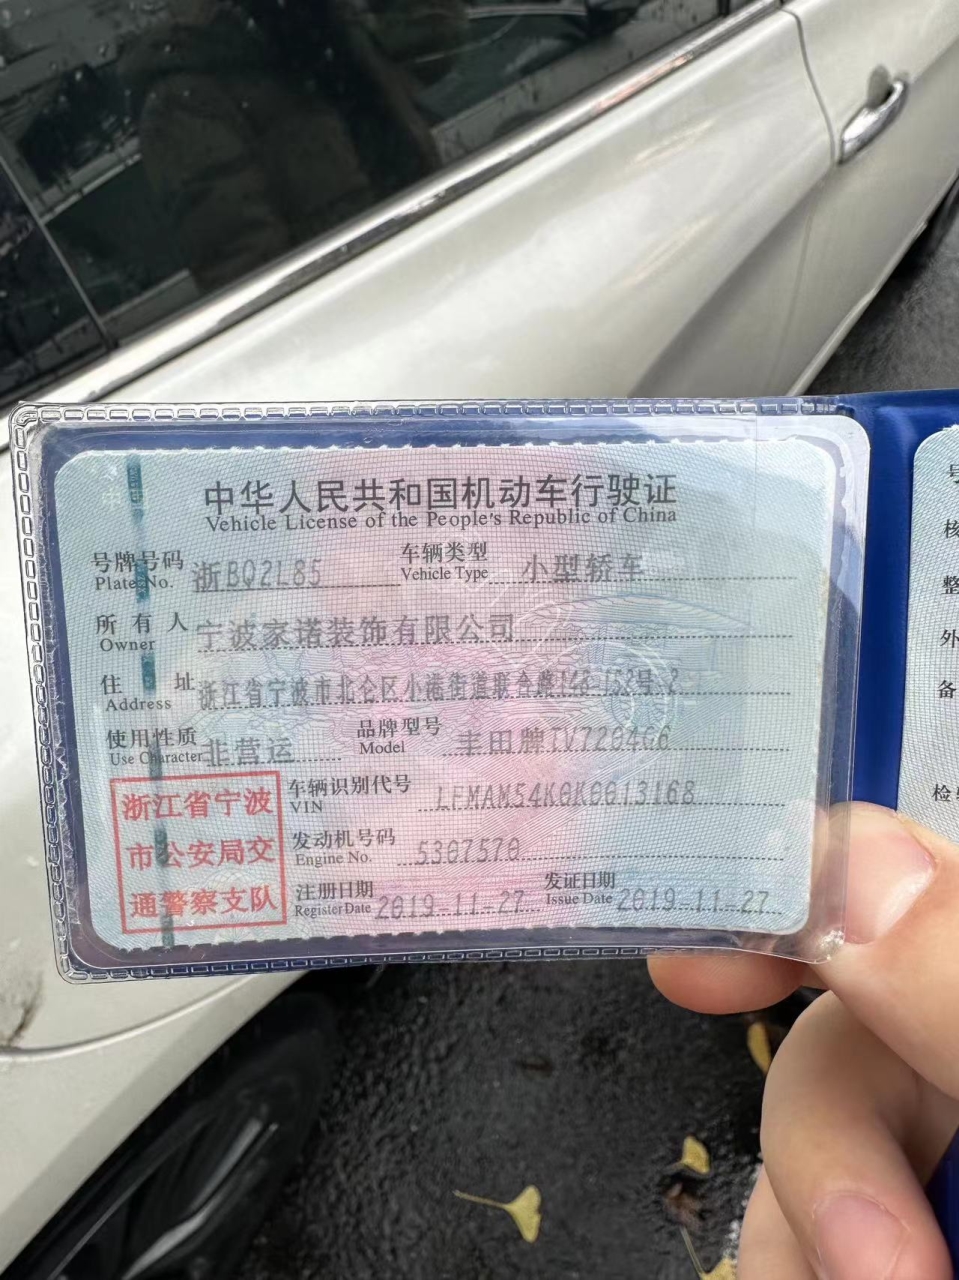 中华人民共和国机动车行驶证
Vehicle License of the People's Republic of China
号牌号码 浙BQ2L85 车辆类型 小型轿车
Plate No. Vehicle Type
所有人 宁波家诺装饰有限公司
Owner
住址 浙江省宁波市北仑区小港街道联合路148-152号-2
Address
使用性质 非营运 品牌型号 丰田牌TV7204G6
Use Character Model
浙江省宁波
市公安局交
通警察支队
车辆识别代号 LFMAM54K0K0013168
VIN
发动机号码 5307570
Engine No.
注册日期 2019-11-27 发证日期 2019-11-27
Register Date Issue Date
号
核
整
外
备
检验